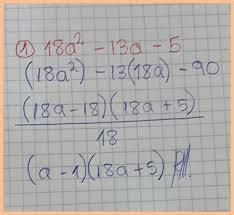 ① 18a² - 13a - 5
(18a²) - 13(18a) - 90
(18a-18)(18a+5)
18
(a-1)(18a+5)